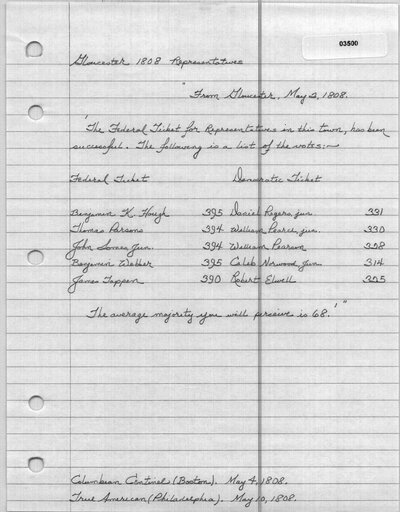 03500
Gloucester 1808 Representatives
"From Gloucester, May 2, 1808.
'The Federal Ticket for Representatives in this town, has been
successful. The following is a list of the votes:—
Federal Ticket Democratic Ticket
Benjamin K. Hough 395 Daniel Rogers, jun. 331
Thomas Parsons 394 William Pearce, jun. 330
John Somes Jun. 394 William Pearson 328
Benjamin Webber 395 Caleb Norwood, Jun. 314
James Tappan 390 Robert Elwell 325
The average majority you will perceive is 68.'"
Columbian Centinel (Boston). May 4, 1808.
True American (Philadelphia). May 10, 1808.